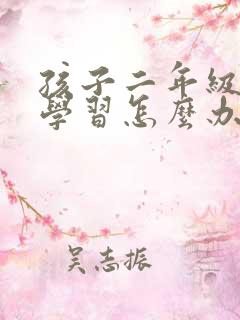 孩子二年級
學習怎麼办
吴志振